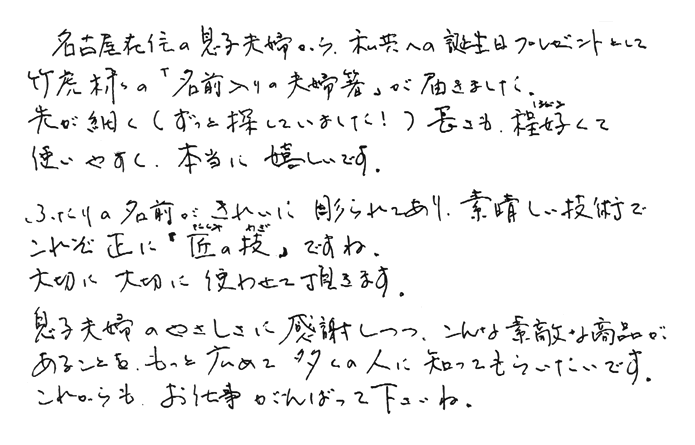 名古屋在住の息子夫婦から、私共への誕生日プレゼントとして
竹虎様の「名前入りの夫婦箸」が届きました。
先が細く(ずっと探していました!)長さも、程好くて
使いやすく、本当に嬉しいです。
ふたりの名前がきれいに彫られてあり、素晴しい技術で
これぞ正に『匠の技』ですね。
大切に大切に使わせて頂きます。
息子夫婦のやさしさに感謝しつつ、こんな素敵な商品が
あることを、もっと広めて多くの人に知ってもらいたいです。
これからも、お仕事がんばって下さいね。